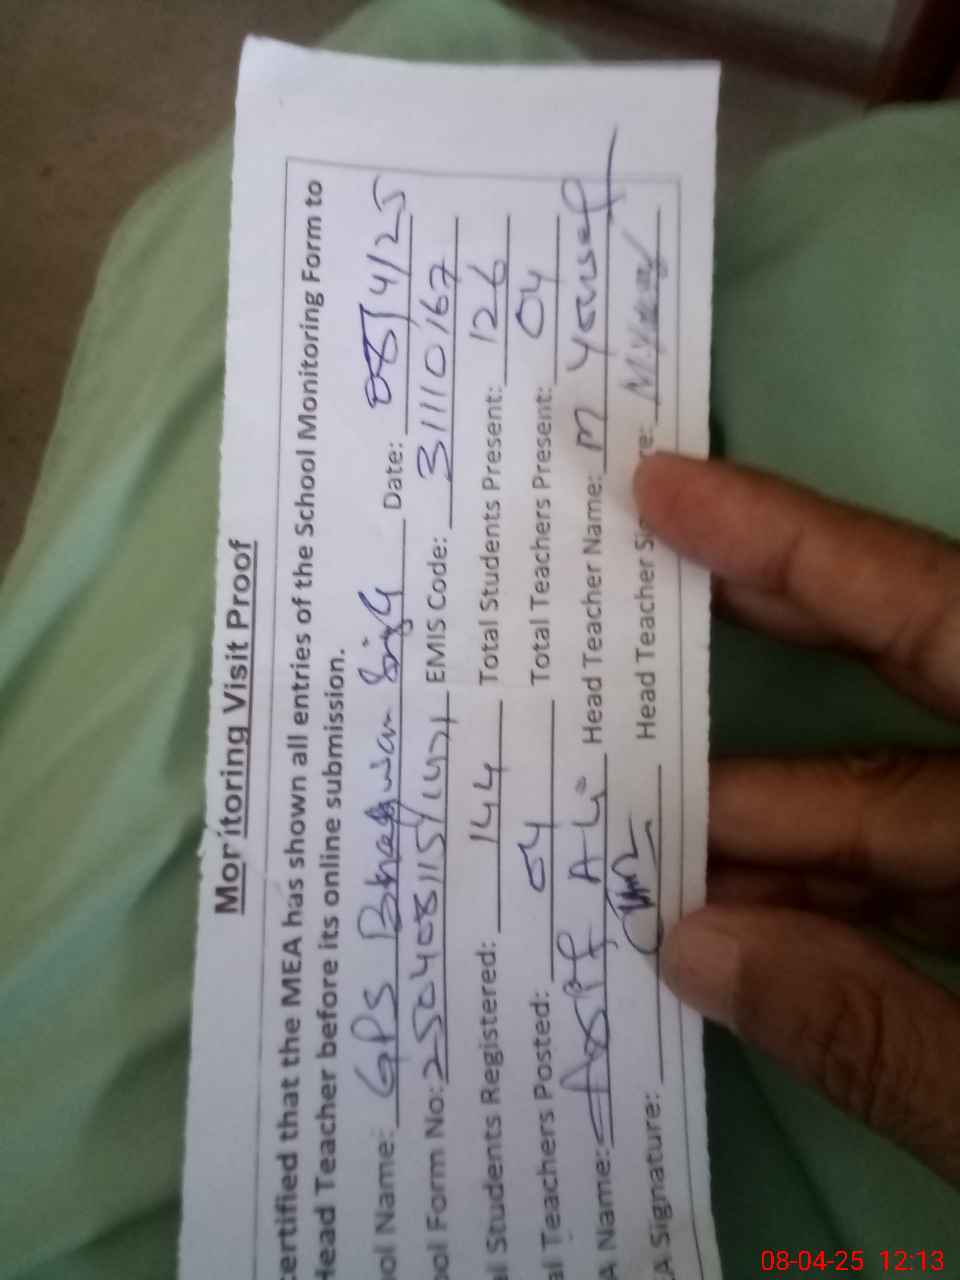 Monitoring Visit Proof
certified that the MEA has shown all entries of the School Monitoring Form to
Head Teacher before its online submission.
ool Name: GPS Bhagwan Singh Date: 08/4/25
ool Form No: EMIS Code: 31110167
al Students Registered: 144 Total Students Present: 126
al Teachers Posted: 04 Total Teachers Present: 04
A Name: Asif Ali Head Teacher Name: M Yousef
A Signature: Head Teacher Si re:
08-04-25 12:13